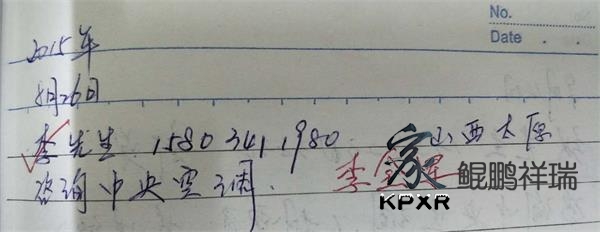 No.
Date . .
2015年
8月26日
李先生 1580 341 1980. 山西太原
咨询中央空调. 李
家 鲲鹏祥瑞
KPXR